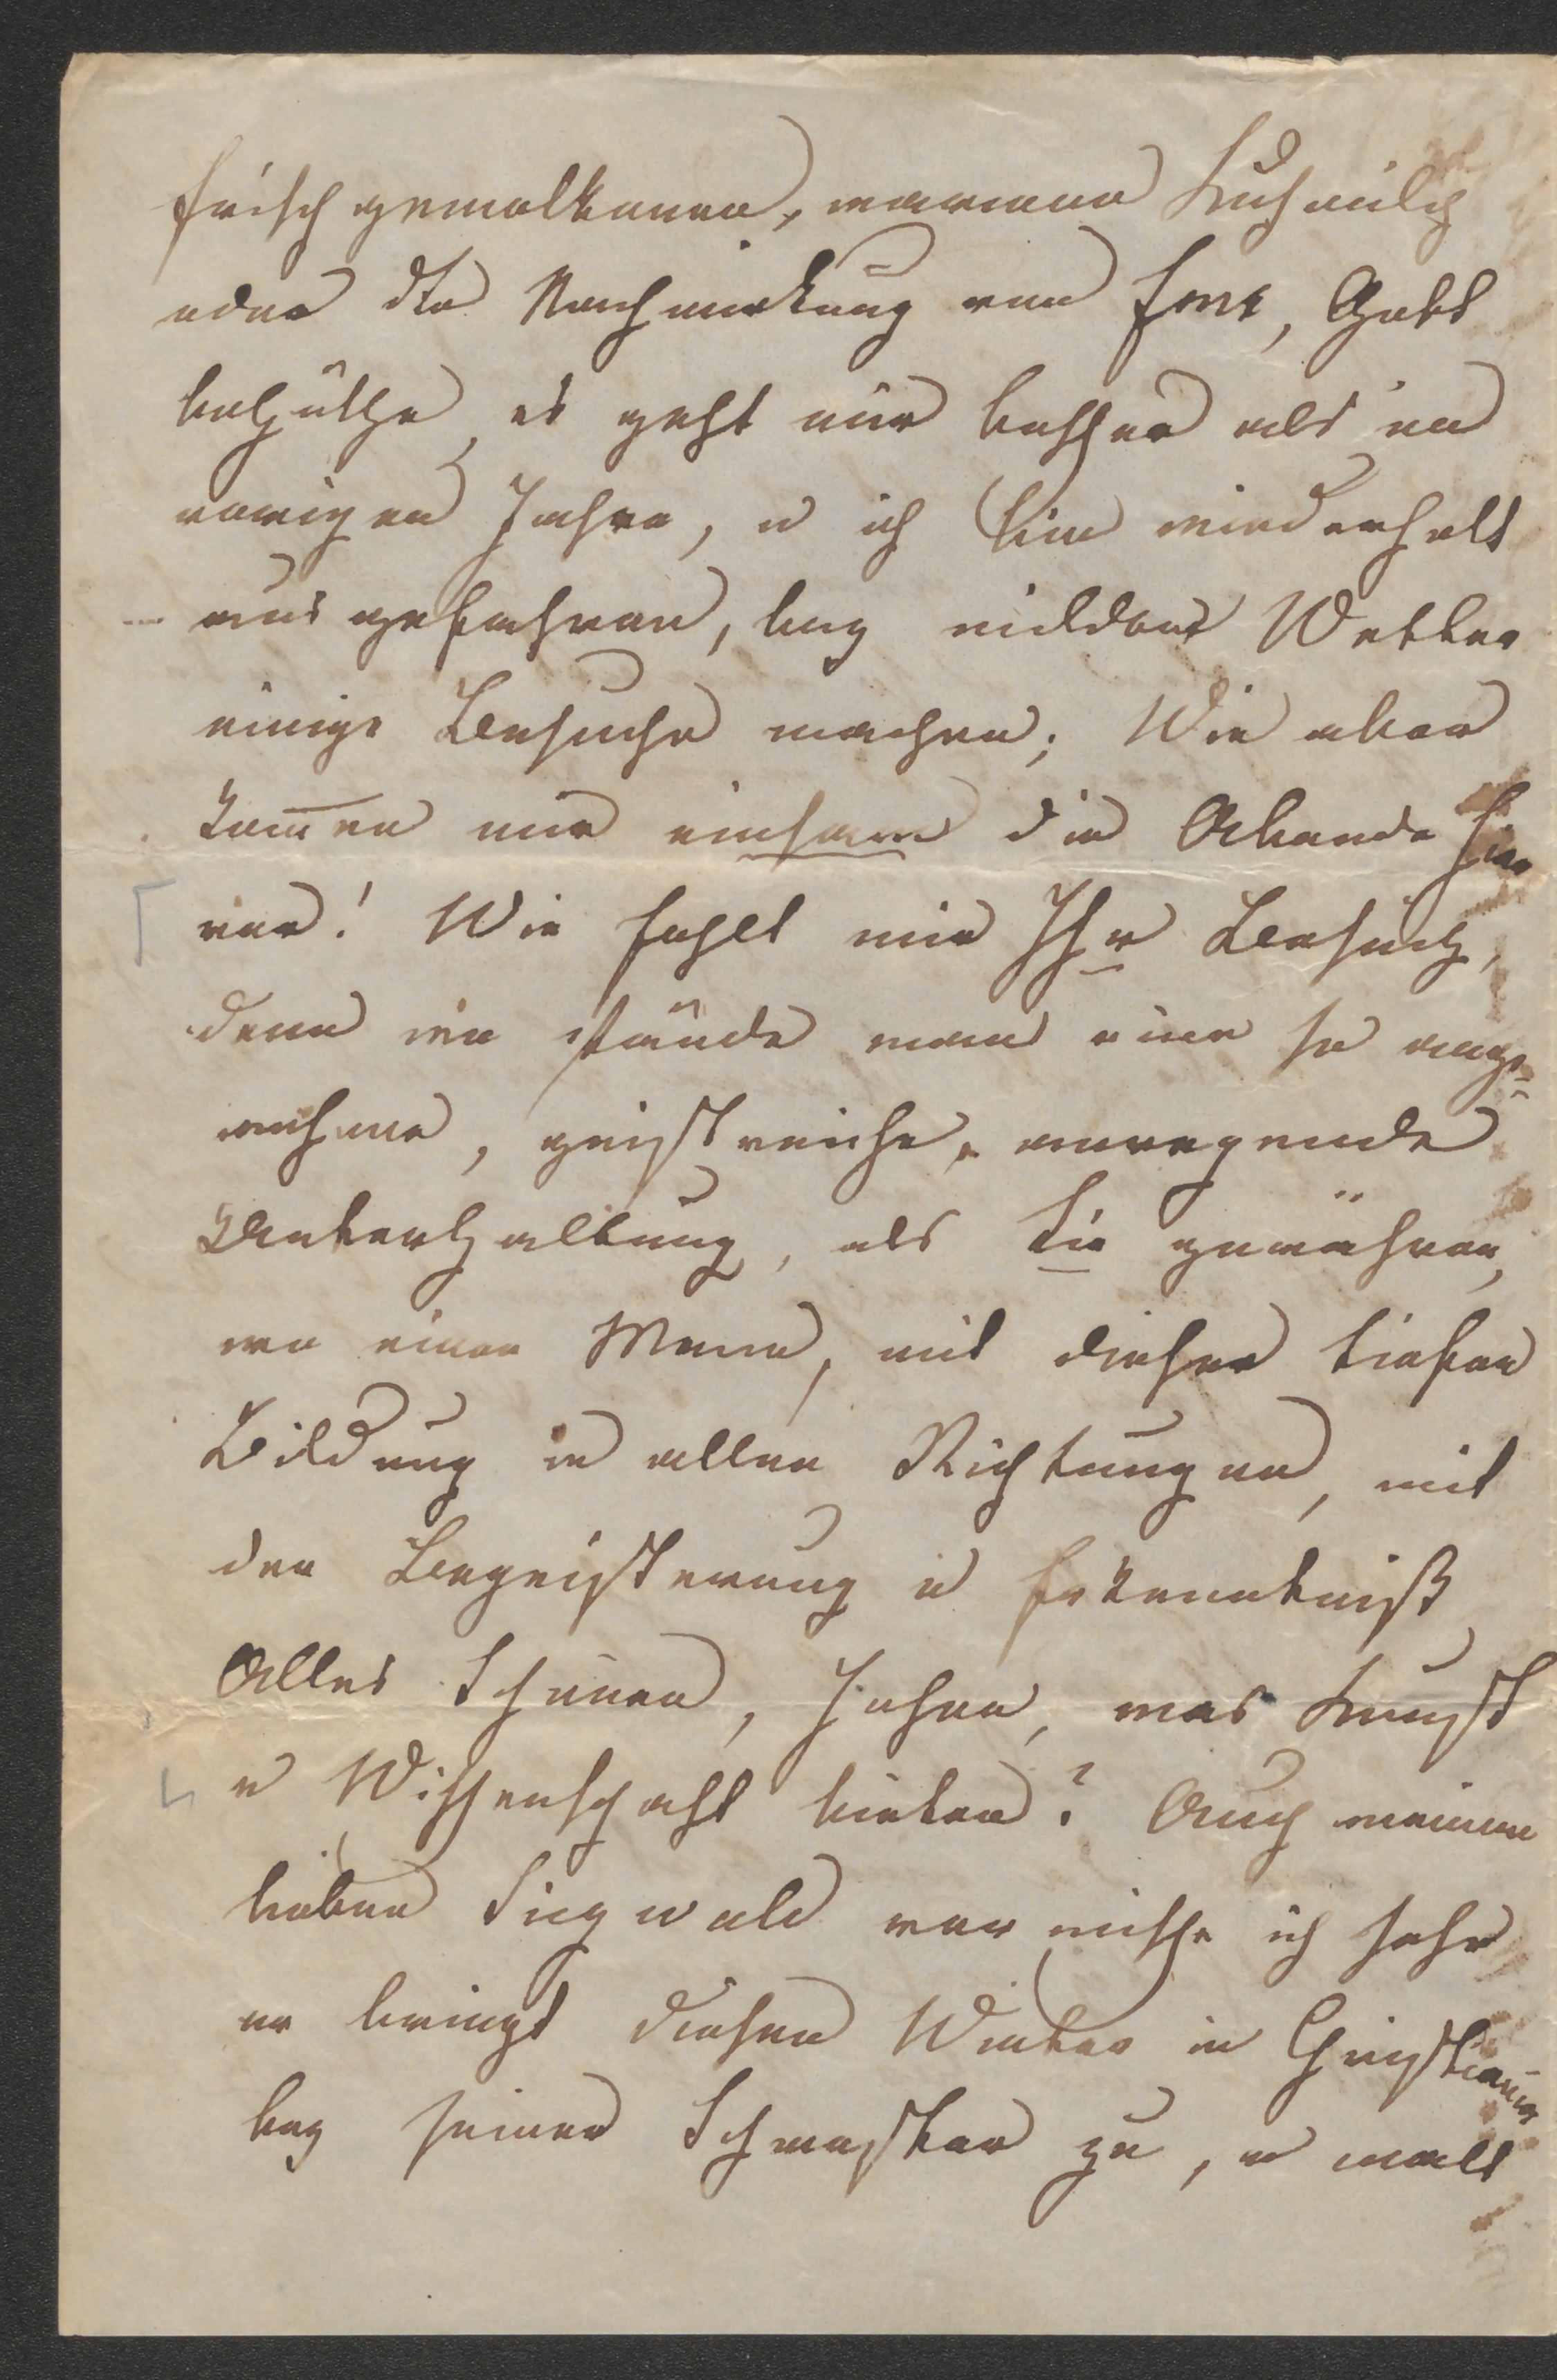 frisch gemolkenen, warmen Kuhmilch
oder die Nachwirkung von Ems, Gott
behüthe, es geht mir besser als im
vorigen Jahre, u ich bin wiederholt
aus gefahren, bey mildem Wetter
einige Besuche machen; Wie aber
kom̅en mir einsam die Abende hier
vor! Wie fehlt mir Ihr Besuch,
denn wo fände man eine so ange=
nehme, geistreiche, anregende
Unterhaltung, als Sie gewähren,
wo einen Mann, mit dieser tiefen
Bildung in allen Richtungen, mit
der Begeisterung u Erkenntniß
Alles Schönen, Hohen, was Kunst
u Wissenschaft bieten? Auch meinen
lieben Siegwald vermisse ich sehr
er bringt diesen Winter in Christiania
bey seiner Schwester zu, u malt